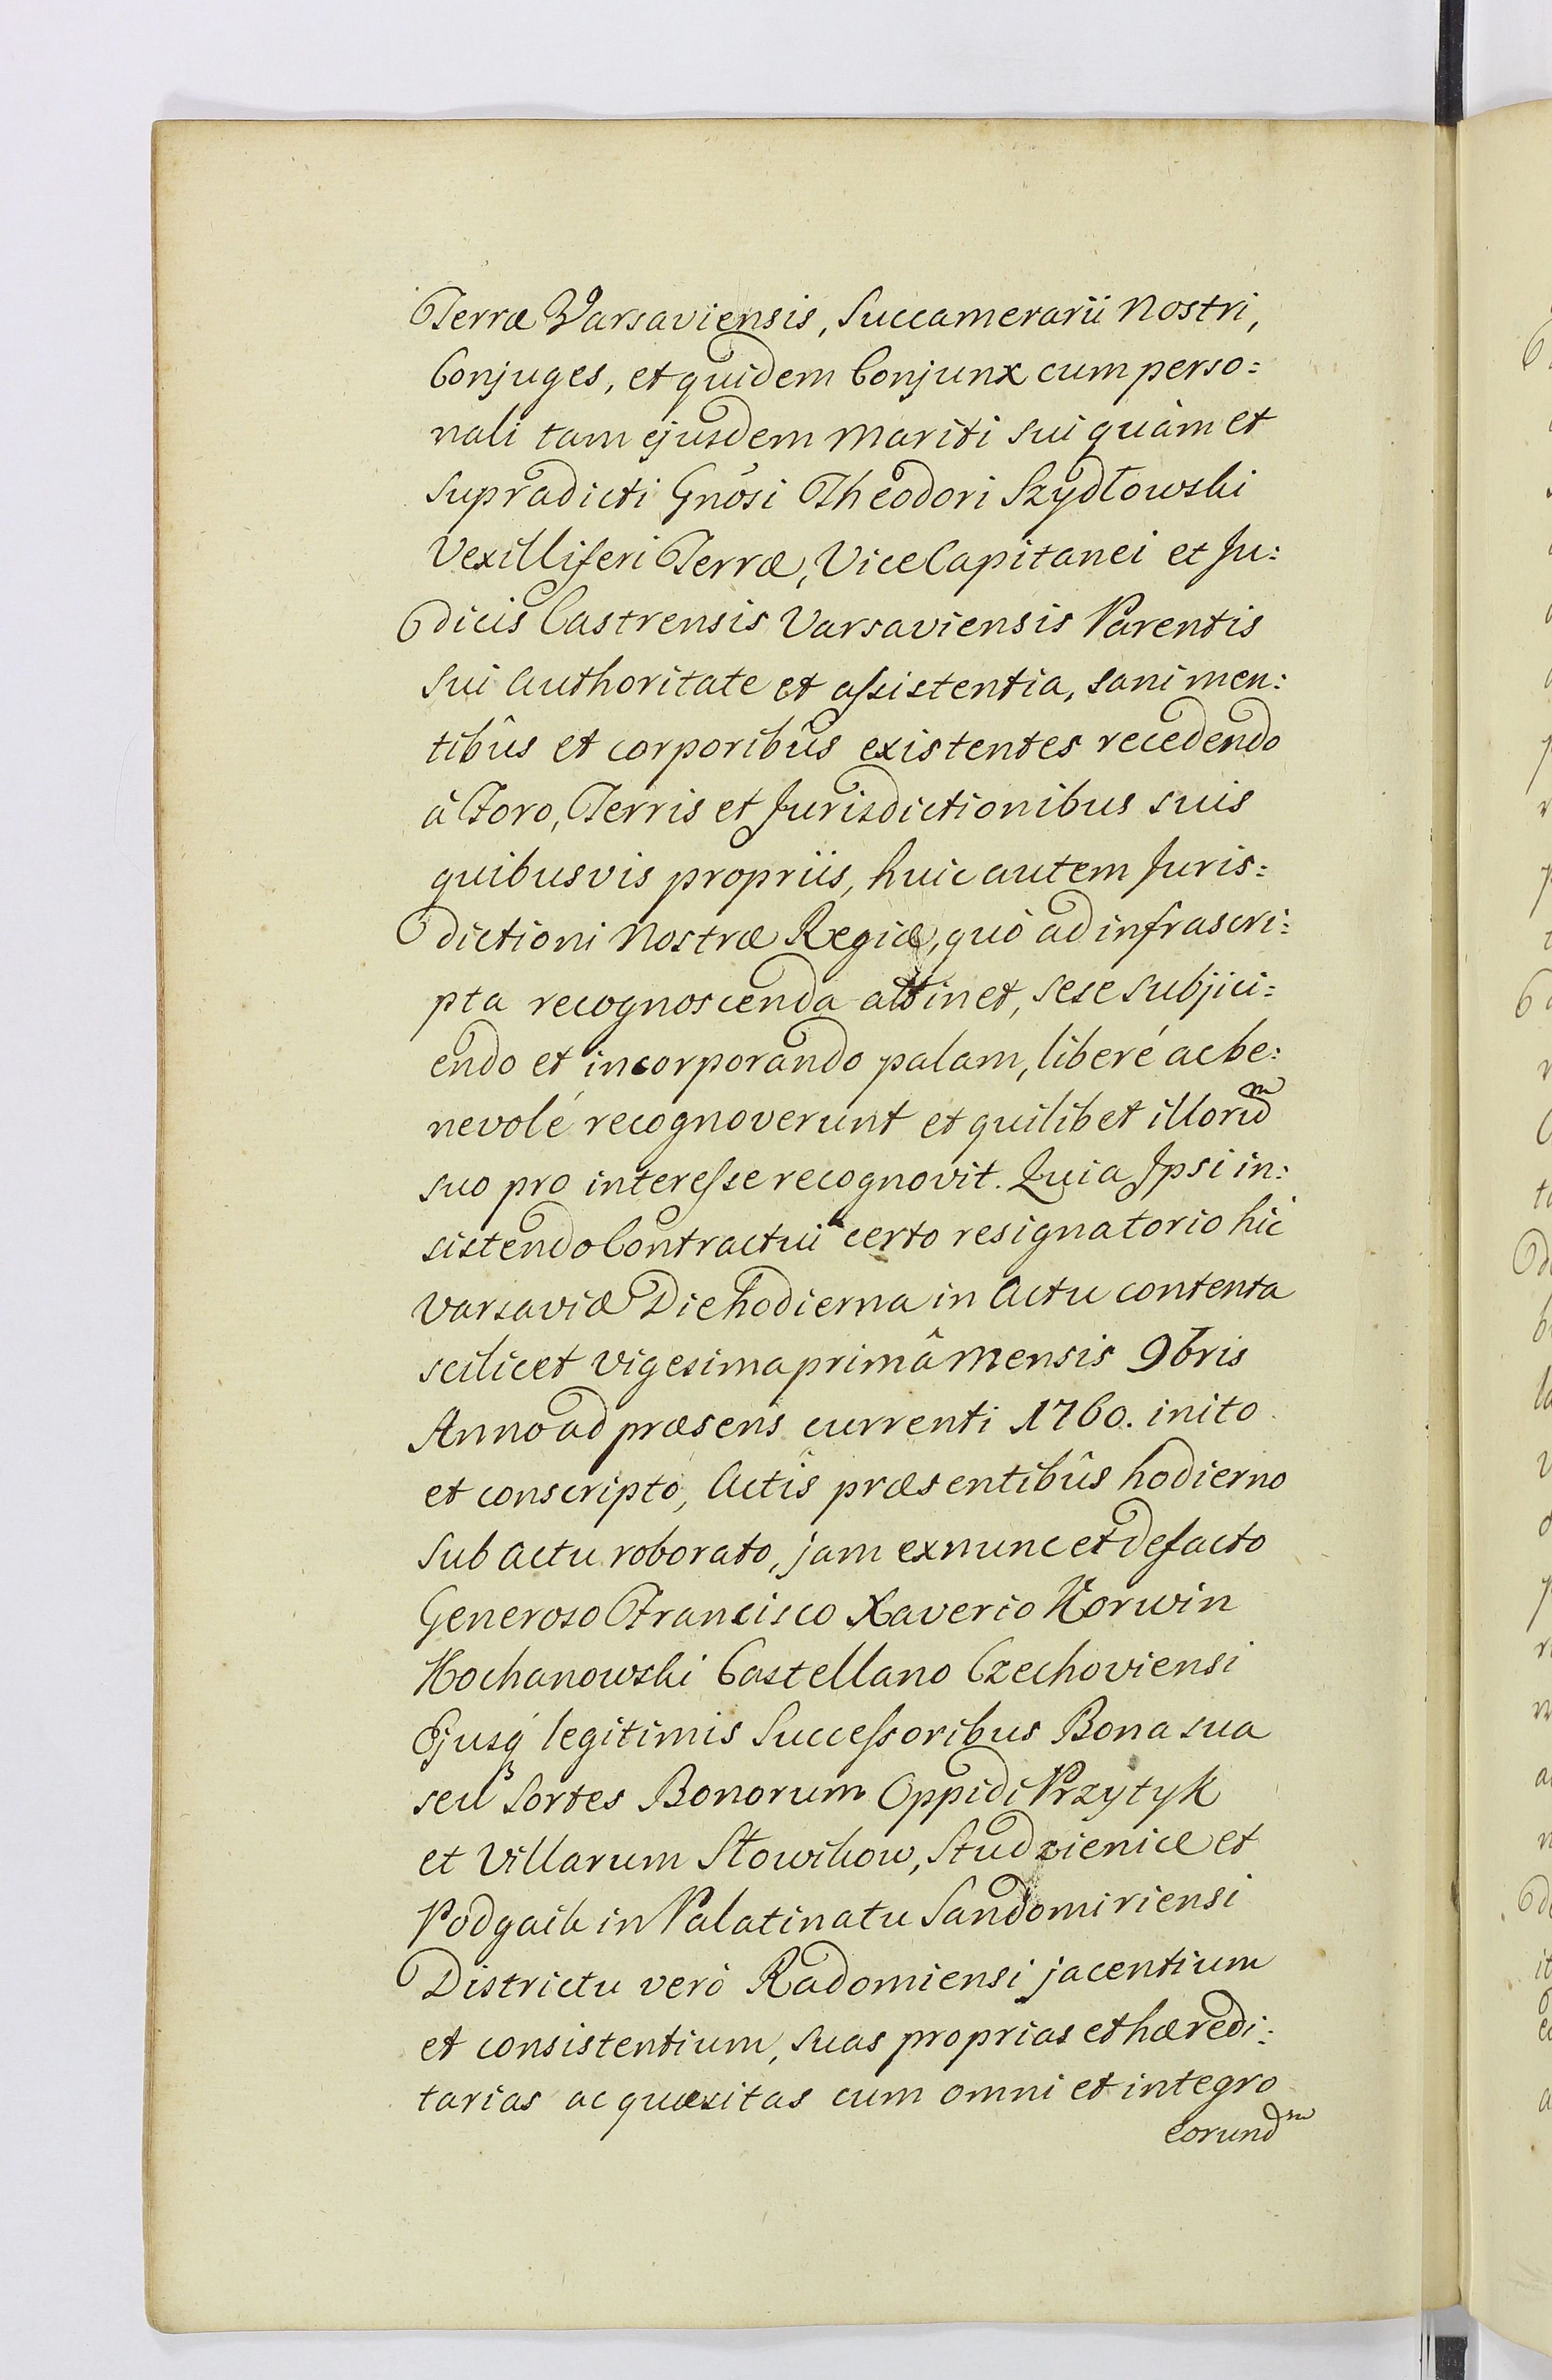 Terræ Varsaviensis, Succamerarii Nostri,
Conjuges, et quidem Conjunx cum perso:
nali tam ejusdem Mariti sui quàm et
supradicti Gnosi Theodori Szydłowski
Vexilliferi Terræ, Vice Capitanei et Ju:
dicis Castrensis Varsaviensis Parentis
sui Authoritate et assistentia, sani men:
tibûs et corporibûs existentes recedendo
à Foro, Terris et Jurisdictionibus suis
quibusvis propriis, huic autem Juris:
dictioni Nostræ Regiæ, quò ad infrascri:
pta recognoscenda attinet, sese subjici:
endo et incorporando palam, liberé ac be:
nevolé recognoverunt et quilibet illorum
suo pro interesse recognovit. Quia Ipsi in:
sistendo Contractui certo resignatorio hic
Varsaviæ Die hodierna in Actu contenta
scilicet vigesima primâ Mensis 9bris
Anno ad præsens currenti 1760. inito
et conscripto, Actis præsentibûs hodierno
sub actu roborato, jam exnunc et defacto
Generoso Francisco Xaverio Korwin
Kochanowski Castellano Czechoviensi
Ejusq́ legitimis Successoribus Bona sua
seu Sortes Bonorum Oppidi Przytyk
et Villarum Słowikow, Studzienice et
Podgaik in Palatinatu Sandomiriensi
Districtu verò Radomiensi jacentium
et consistentium, suas proprias et hæredi:
tarias acquæsitas cum omni et integro
eorundm